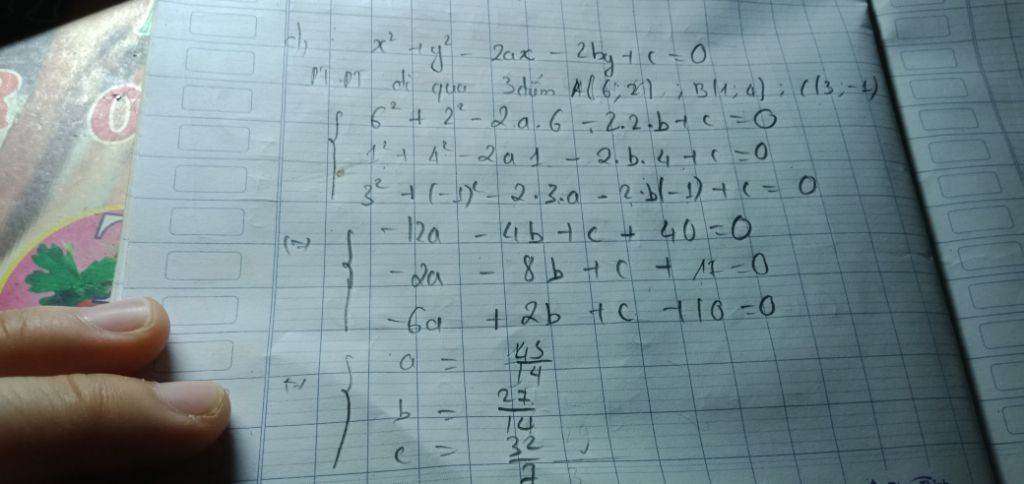 d), x² + y² - 2ax - 2by + c = 0
PT ĐT đi qua 3 điểm A(6; 2) ; B(1; 4) ; C(3; -1)
6² + 2² - 2a.6 - 2.2.b + c = 0
1² + 4² - 2a1 - 2.b.4 + c = 0
3² + (-1)² - 2.3.a - 2.b(-1) + c = 0
(=) -12a - 4b + c + 40 = 0
-2a - 8b + c + 17 = 0
-6a + 2b + c + 10 = 0
a = 43/14
b = 27/14
c = 32/7